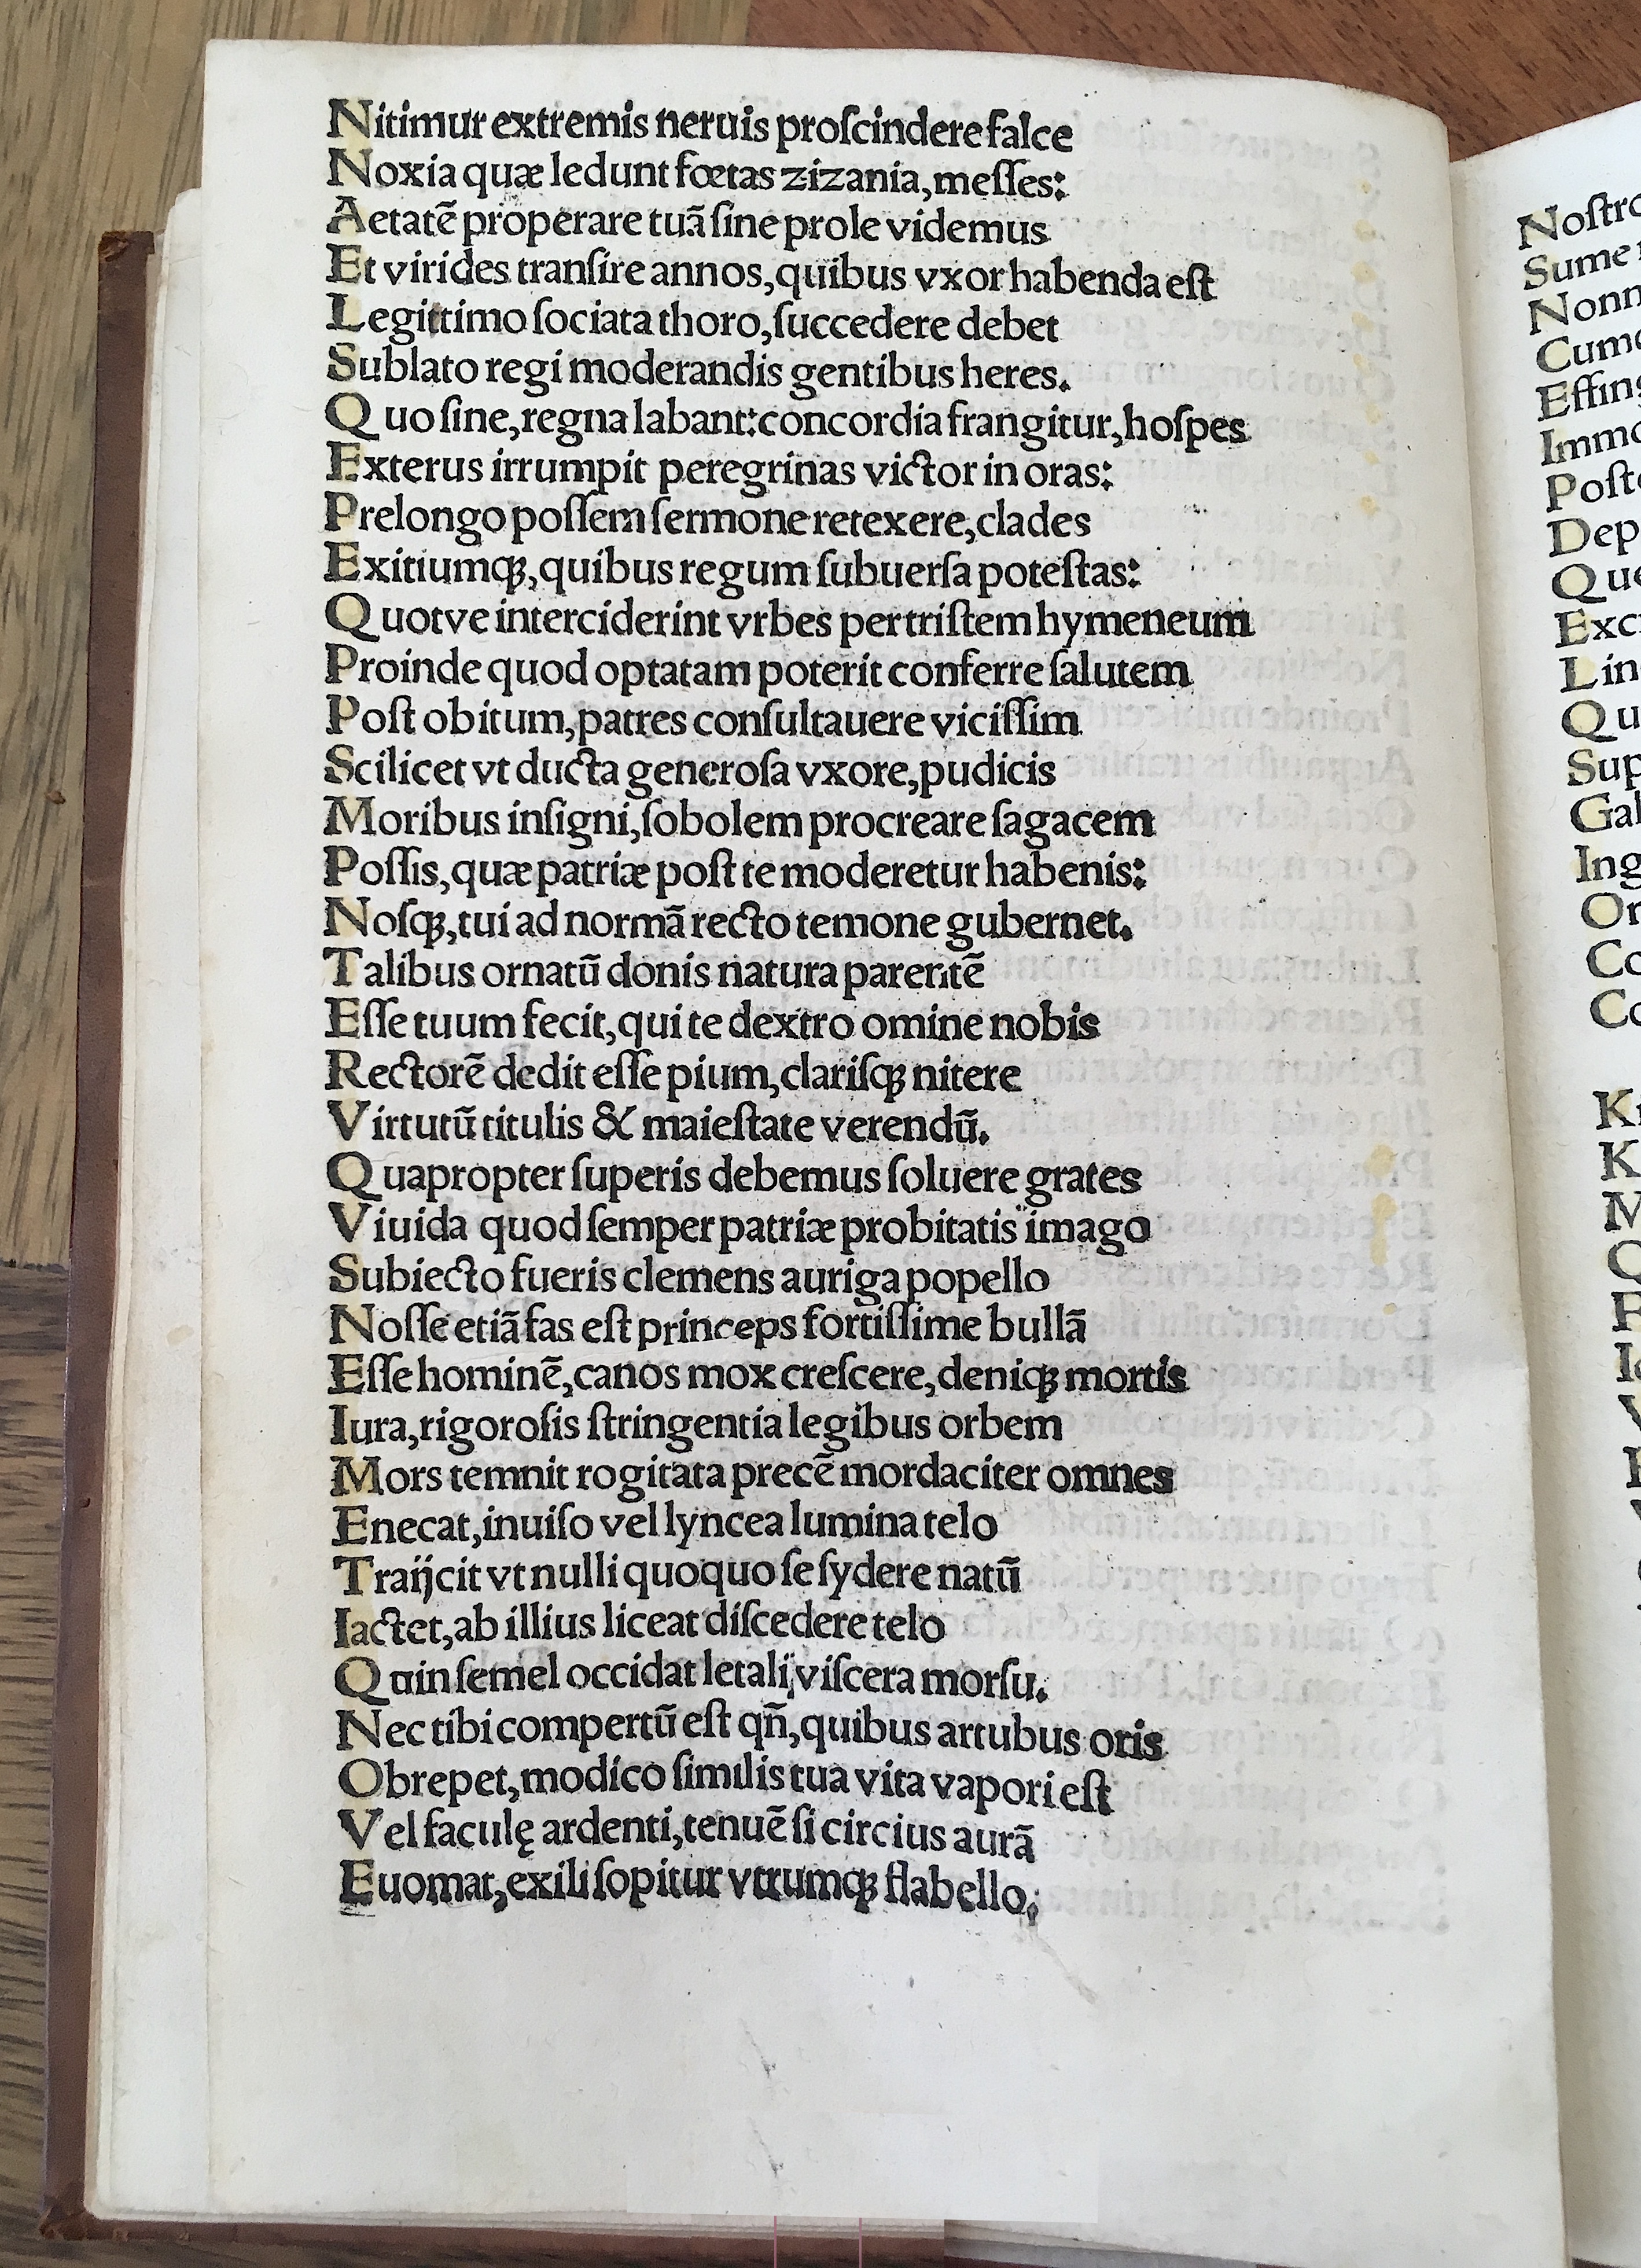 Nitimur extremis neruis proſcindere falce
Noxia quæ ledunt fœtas zizania, meſſes:
Aetatē properare tuā ſine prole videmus
Et virides tranſire annos, quibus vxor habenda eſt
Legittimo ſociata thoro, ſuccedere debet
Sublato regi moderandis gentibus heres.
Quo ſine, regna labant: concordia frangitur, hoſpes
Exterus irrumpit peregrinas victor in oras:
Prelongo poſſem ſermone retexere, clades
Exitiumqꝫ, quibus regum ſubuerſa poteſtas:
Quotve interciderint vrbes per triſtem hymeneum
Proinde quod optatam poterit conferre ſalutem
Poſt obitum, patres conſultauere viciſſim
Scilicet vt ducta generoſa vxore, pudicis
Moribus inſigni, ſobolem procreare ſagacem
Poſſis, quæ patriæ poſt te moderetur habenis:
Noſqꝫ, tui ad normā recto temone gubernet.
Talibus ornatū donis natura parentē
Eſſe tuum fecit, qui te dextro omine nobis
Rectorē dedit eſſe pium, clariſqꝫ nitere
Virtutū titulis & maieſtate verendū.
Quapropter ſuperis debemus ſoluere grates
Viuida quod ſemper patriæ probitatis imago
Subiecto fueris clemens auriga popello
Noſſe etiā fas eſt princeps fortiſſime bullā
Eſſe hominē, canos mox creſcere, deniqꝫ mortis
Iura, rigoroſis ſtringentia legibus orbem
Mors temnit rogitata precē mordaciter omnes
Enecat, inuiſo vel lyncea lumina telo
Traijcit vt nulli quoquo ſe ſydere natū
Iactet, ab illius liceat diſcedere telo
Quin ſemel occidat letali viſcera morſu.
Nec tibi compertū eſt qñ, quibus artubus oris
Obrepet, modico ſimilis tua vita vapori eſt
Vel faculę ardenti, tenuē ſi circius aurā
Euomat, exili ſopitur vtrumqꝫ flabello,
Sume
Effin